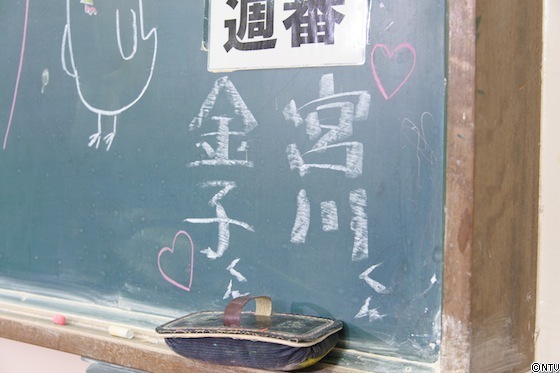 週番
宮川くん
金子くん
©NTV